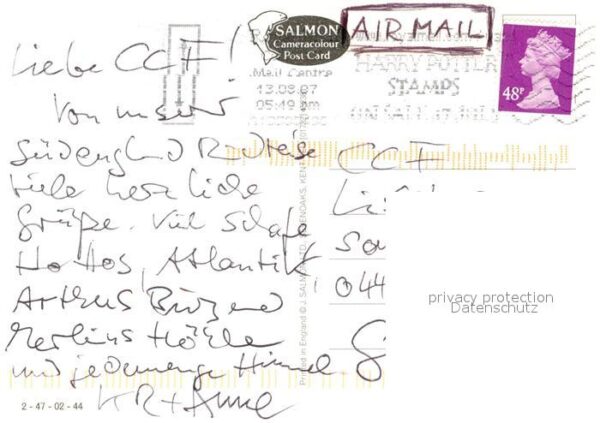 SALMON
Cameracolour
Post Card
AIR MAIL
Mail Centre
13.08.07
05:49 pm
HARRY POTTER
STAMPS
ON SALE 17 JULY
48P
Liebe CCF!
Von unserer
Südengland Radreise
viele herzliche
Grüße. Viel Schafe
Hottos, Atlantik
Arthus Burgend
Merlins Höhle
und jedemenge Himmel
KR + Anne
CCF
044
privacy protection
Datenschutz
Printed in England © J. SALMON LTD., SEVENOAKS, KENT
2-47-02-44